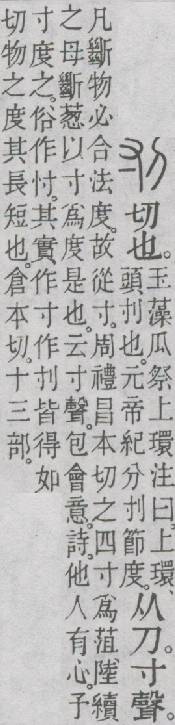 刌切也。玉藻瓜祭上環注曰。上環、
頭刌也。元帝紀分刌節度。从刀。寸聲。
凡斷物必合法度。故從寸。周禮昌本切之四寸爲菹。陸續
之母斷葱以寸爲度是也。云寸聲。包會意。詩。他人有心。予
寸度之。俗作忖。其實作寸作刌皆得。如
切物之度其長短也。倉本切。十三部。